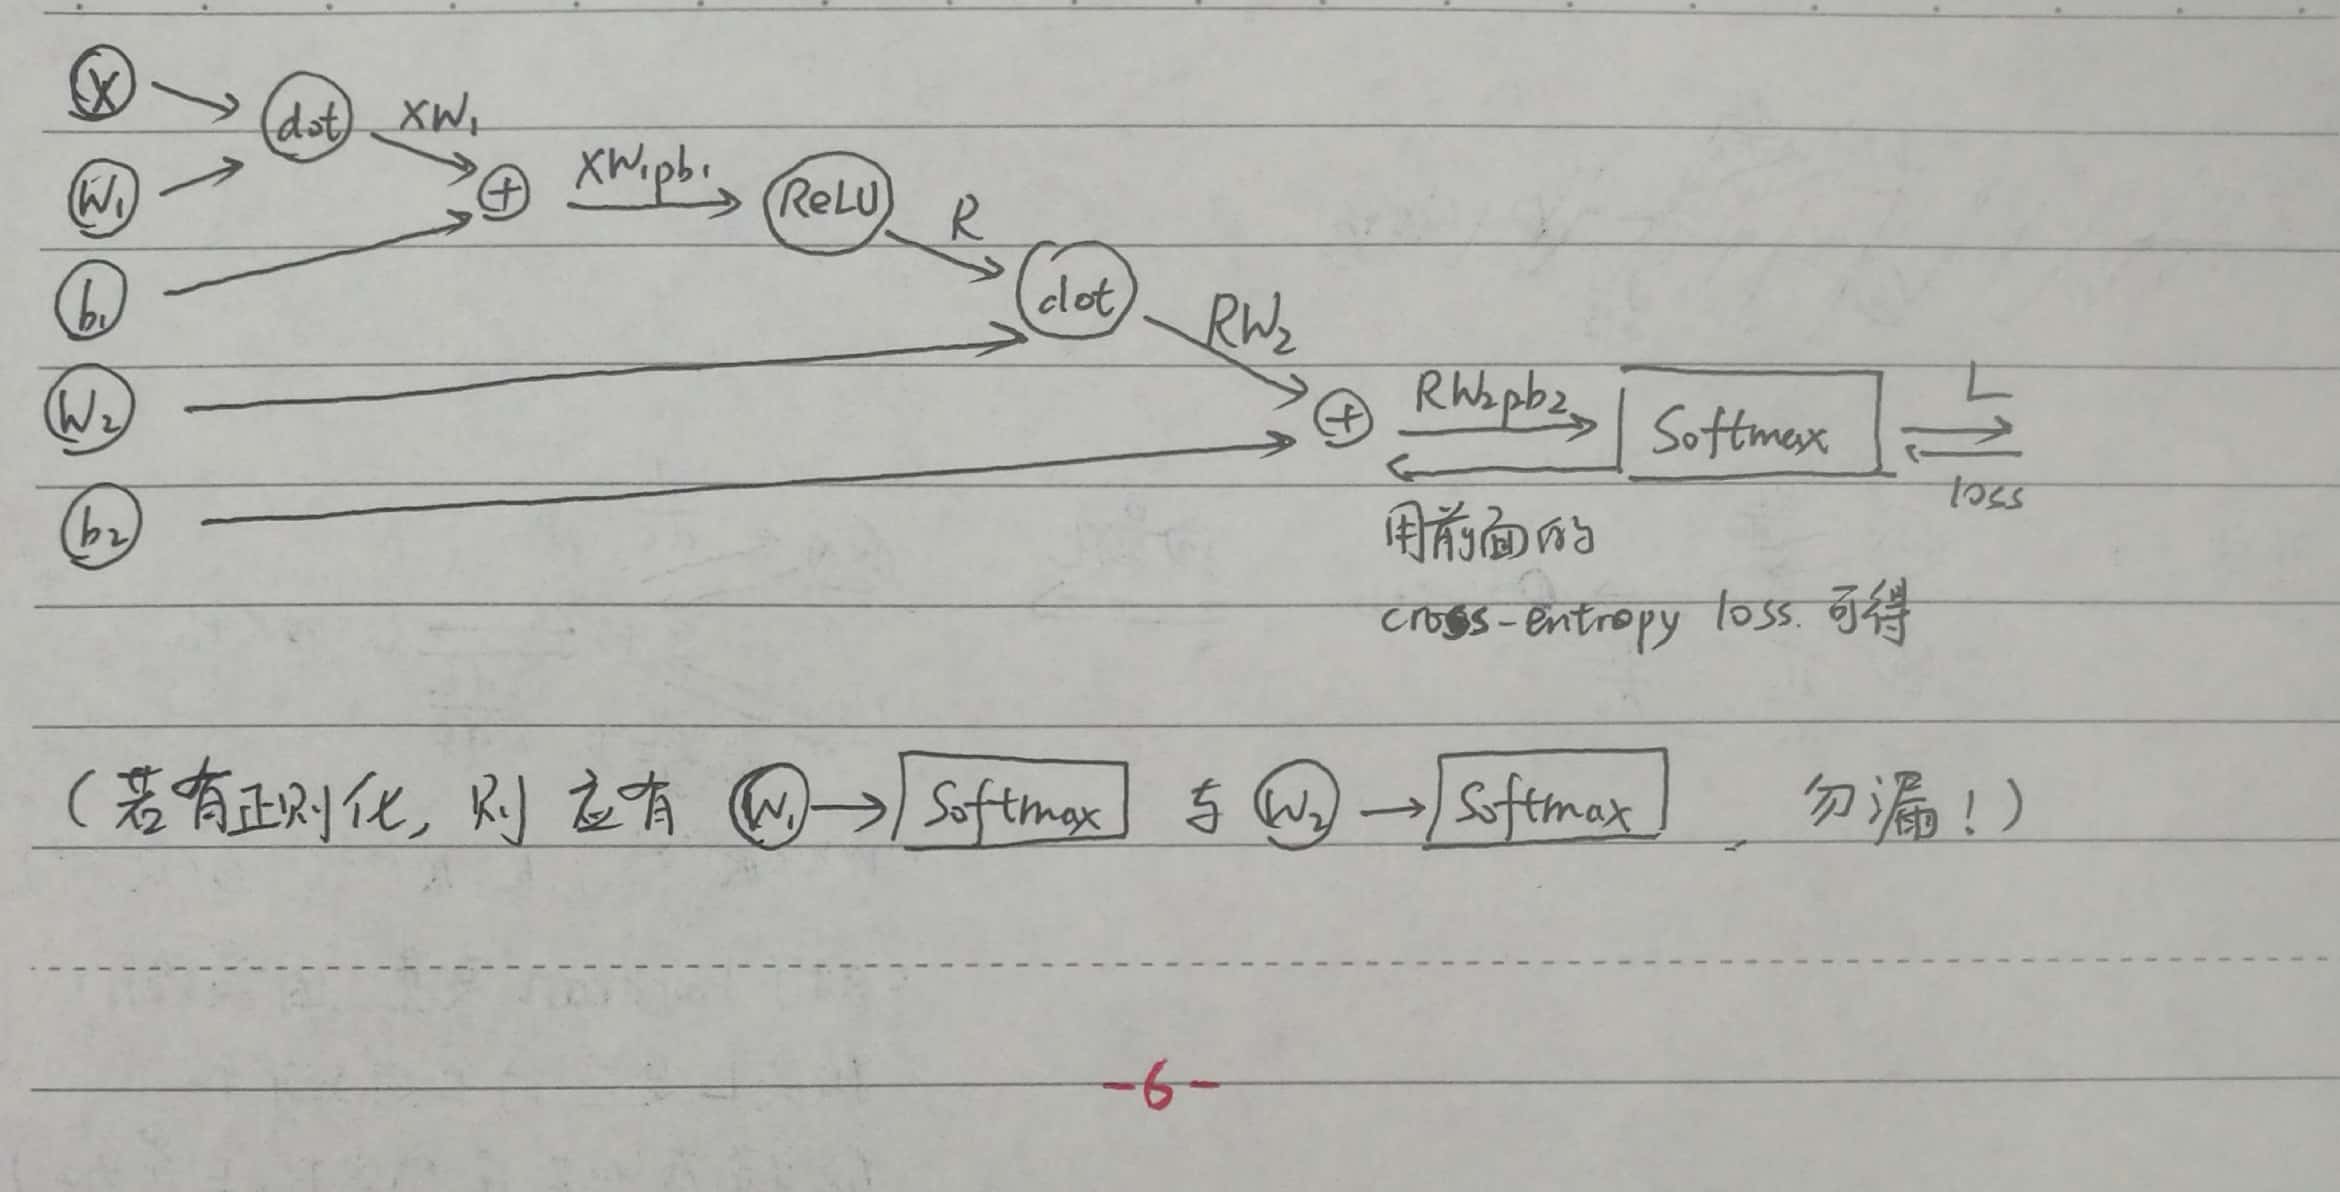 X
dot
XW₁
W₁
+
XW₁pb₁
ReLU
R
b₁
dot
RW₂
W₂
+
RW₂pb₂
Softmax
L
loss
b₂
用前面的
cross-entropy loss. 可得
(若有正则化, 则应有 W₁→Softmax 与 W₂→Softmax 勿漏!)
-6-